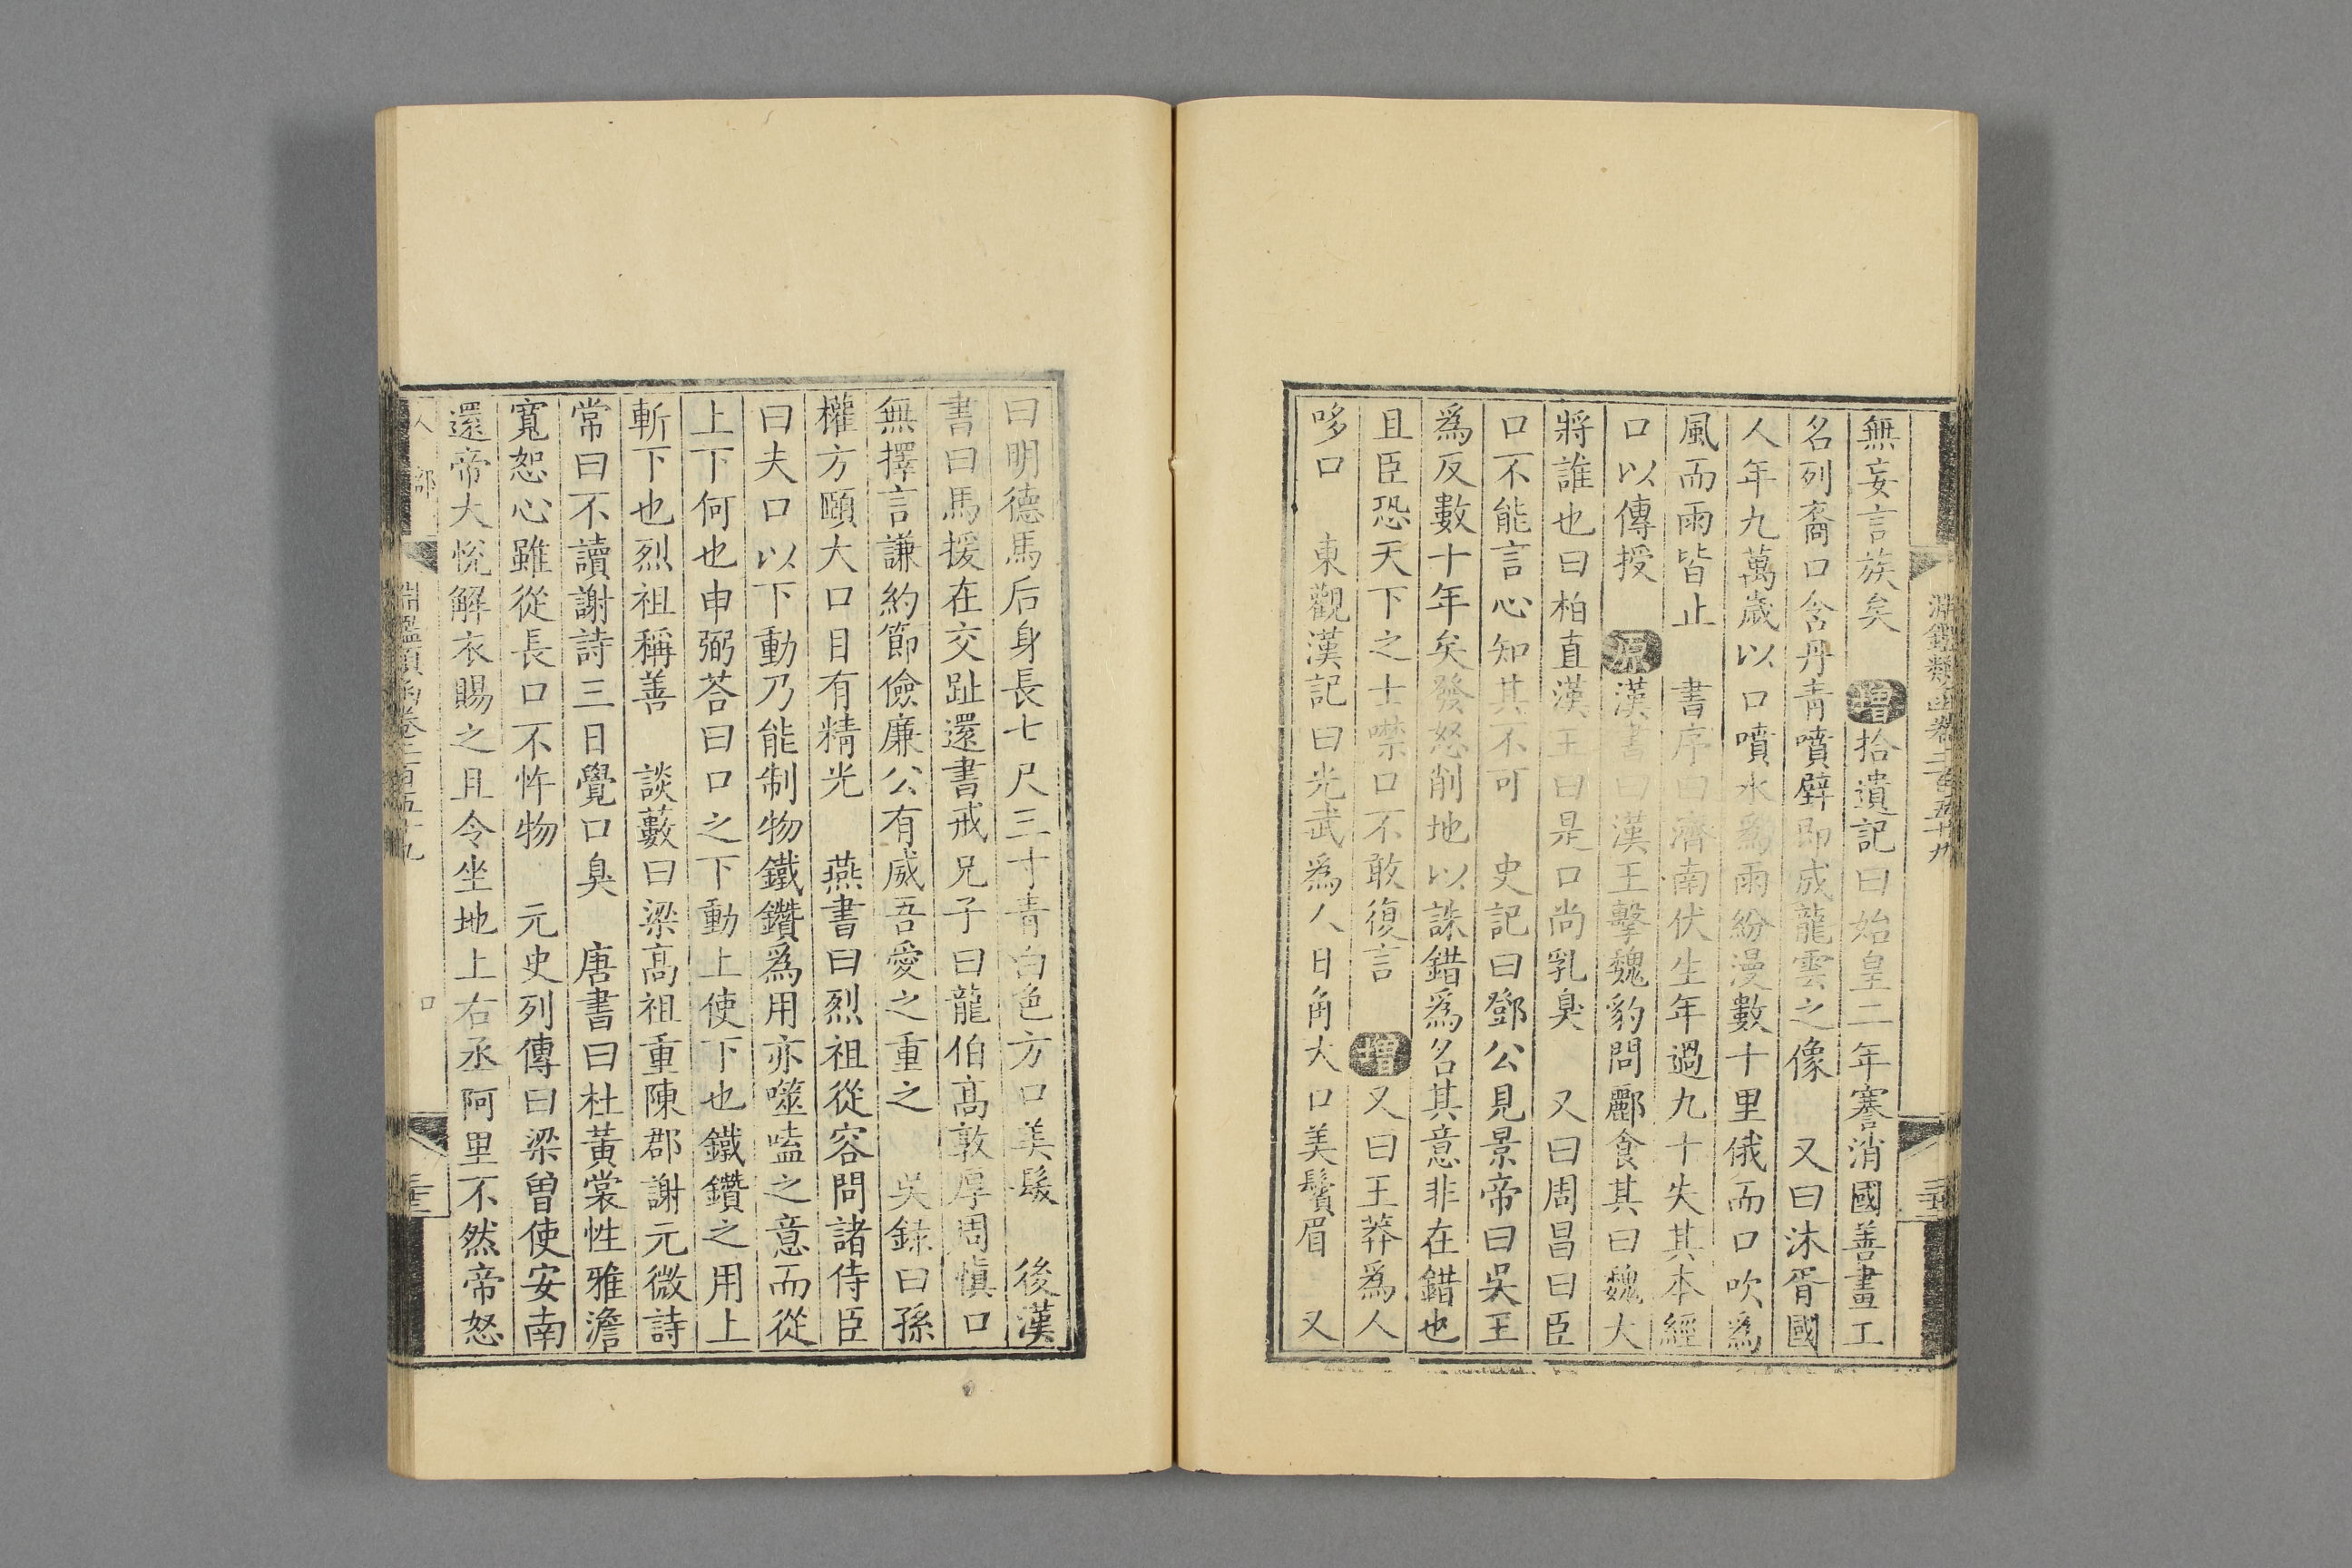 淵鑑類函卷二百五十九
無妄言族矣　增拾遺記曰始皇二年騫消國善畫工
名列裔口含丹青噴壁即成龍雲之像　又曰沐胥國
人年九萬歲以口噴水爲雨紛漫數十里俄而口吹爲
風而雨皆止　書序曰濟南伏生年過九十失其本經
口以傳授　原漢書曰漢王擊魏豹問酈食其曰魏大
將誰也曰柏直漢王曰是口尚乳臭　又曰周昌曰臣
口不能言心知其不可　史記曰鄧公見景帝曰吳王
爲反數十年矣發怒削地以誅錯爲名其意非在錯也
且臣恐天下之士噤口不敢復言　增又曰王莽爲人
哆口　東觀漢記曰光武爲人日角大口美鬚眉　又
曰明德馬后身長七尺三寸青白色方口美髮　後漢
書曰馬援在交趾還書戒兄子曰龍伯高敦厚周慎口
無擇言謙約節儉廉公有威吾愛之重之　吳錄曰孫
權方頤大口目有精光　燕書曰烈祖從容問諸侍臣
曰夫口以下動乃能制物鐵鑽爲用亦噬嗑之意而從
上下何也申弼荅曰口之下動上使下也鐵鑽之用上
斬下也烈祖稱善　談藪曰梁高祖重陳郡謝元微詩
常曰不讀謝詩三日覺口臭　唐書曰杜黃裳性雅澹
寬恕心雖從長口不忤物　元史列傳曰梁曾使安南
還帝大悅解衣賜之且令坐地上右丞阿里不然帝怒
人部
淵鑑類函卷二百五十九
口